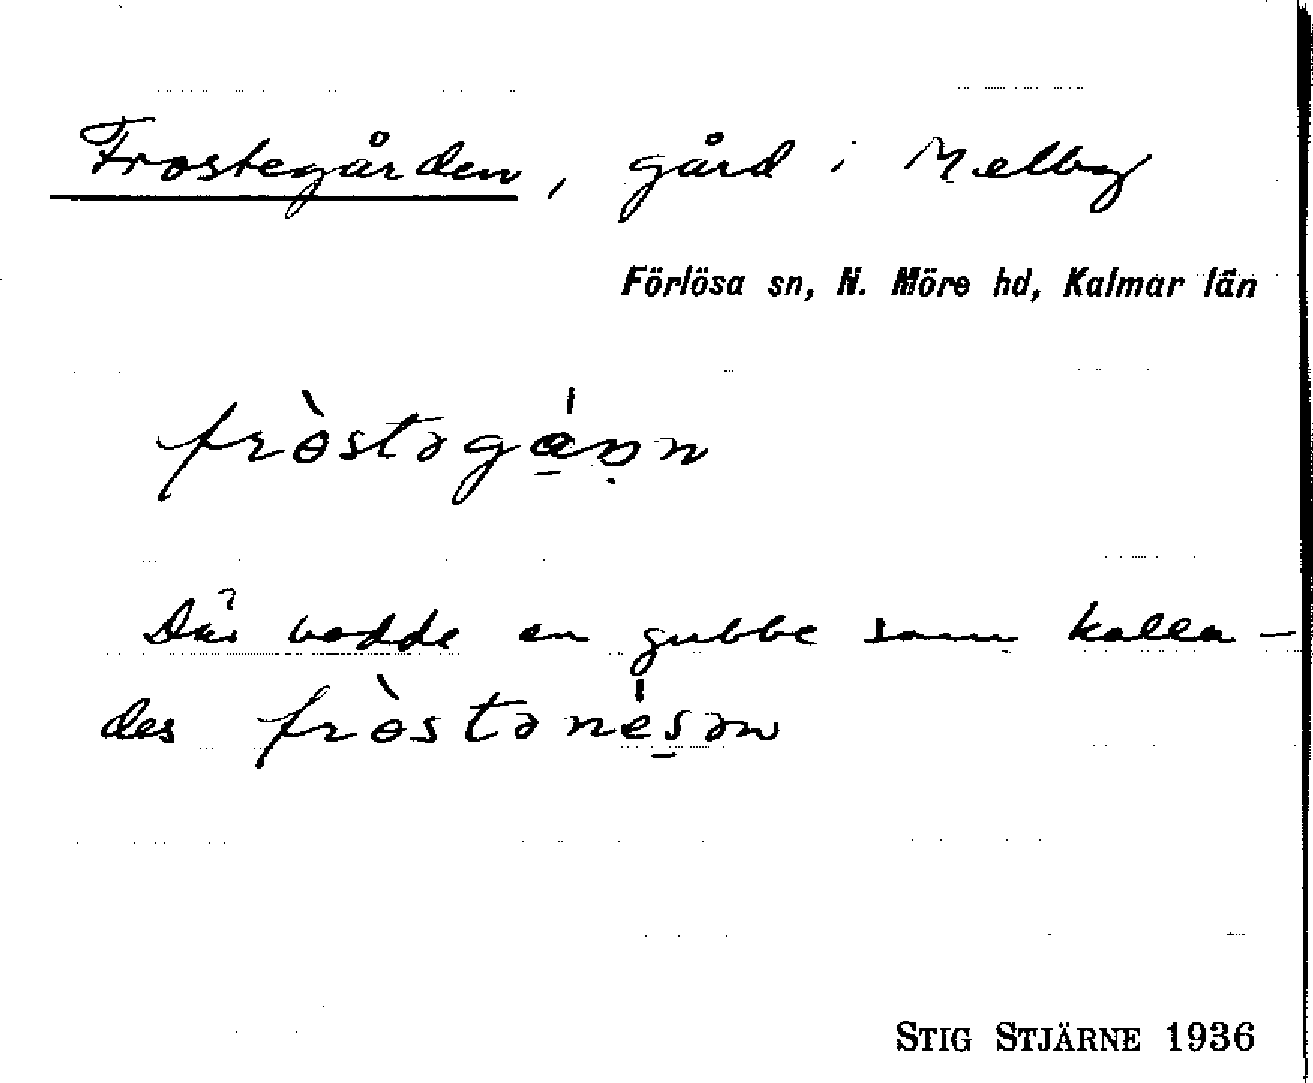 Frostegården, gård i Melby
Förlösa sn, N. Möre hd, Kalmar län
fròstəgɑ́ṇn
Där bodde en gubbe som kalla-
des fròstənésən
STIG STJÄRNE 1936